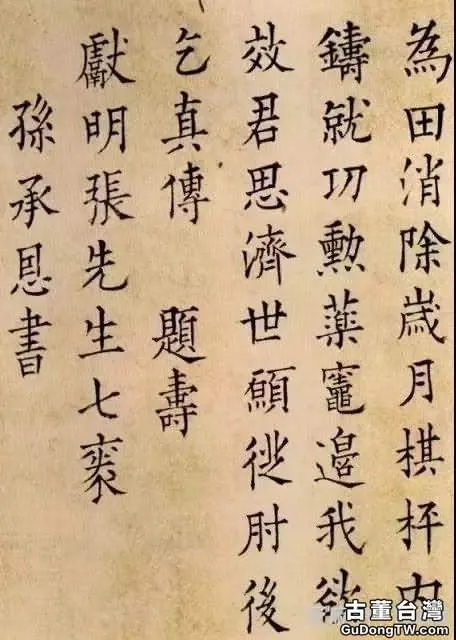 為田消除歲月棋枰內
鑄就功勲藥竈邉我欲
效君思濟世願從肘後
乞真傳　題壽
獻明張先生七袠
孫承恩書
古董台灣
GuDongTW.com